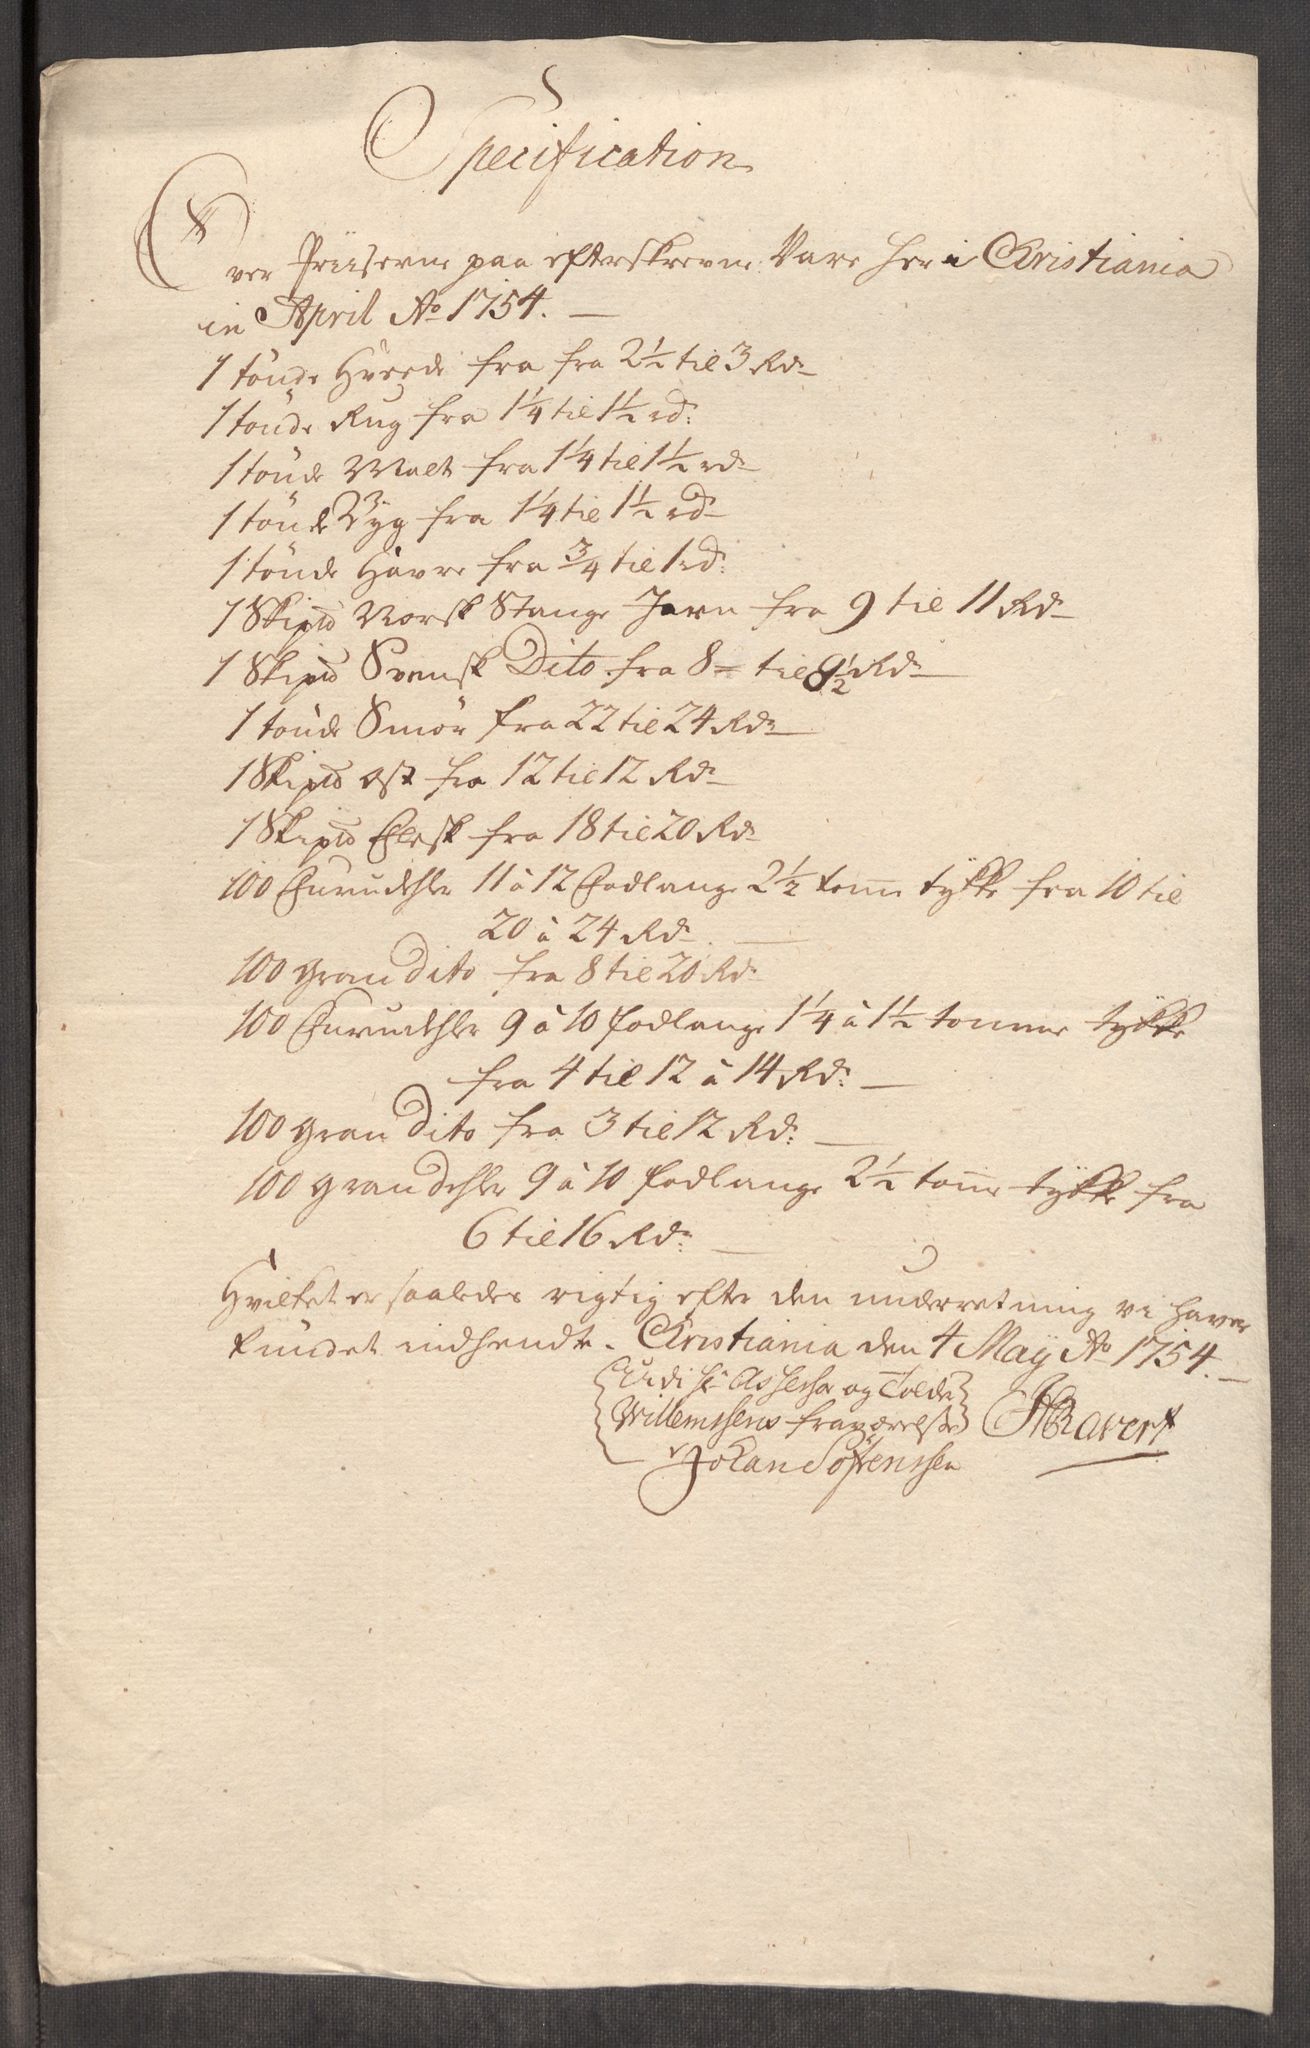 Specification
Over Priiserne paa efterskrevne Vare her i Christiania
in April Ao 1754.
1 tönde Hveede fra fra 2½ til 3 Rdr
1 tönde Rug fra 1¼ til 1½ rd:
1 tönde Malt fra 1¼ til 1½ rdr
1 tönde Byg fra 1¼ til 1½ rdr
1 tönde Havre fra ¾ til 1 rd:
1 Skipd Norsk Stange Jern fra 9 til 11 Rdr
1 Skipd Svensk Dito fra 8 til 8½ Rdr
1 tönde Smör fra 22 til 24 Rdr
1 Skipd Ost fra 12 til 12 Rdr
1 Skipd Flesk fra 18 til 20 Rdr
100 Furudehler 11 à 12 Fodlange 2½ tomme tÿkke fra 10 til
20 à 24 Rdr
100 Gran Dito fra 8 til 20 Rdr
100 Furudehler 9 à 10 fodlange 1¼ à 1½ tomme tÿkke
fra 4 til 12 à 14 Rdr:
100 Gran Dito fra 3 til 12 Rdr:
100 Grandehler 9 à 10 fodlange 2½ tomme tÿkke fra
6 til 16 Rdr:
Hvilket er saaledes rigtig efter den underretning vi haver
kundet indhendte. Christiania den 4 Maÿ Ao 1754.
Udi Hr Assessor og Tolder
Willemssens fraværelse
Johan Sörenssen